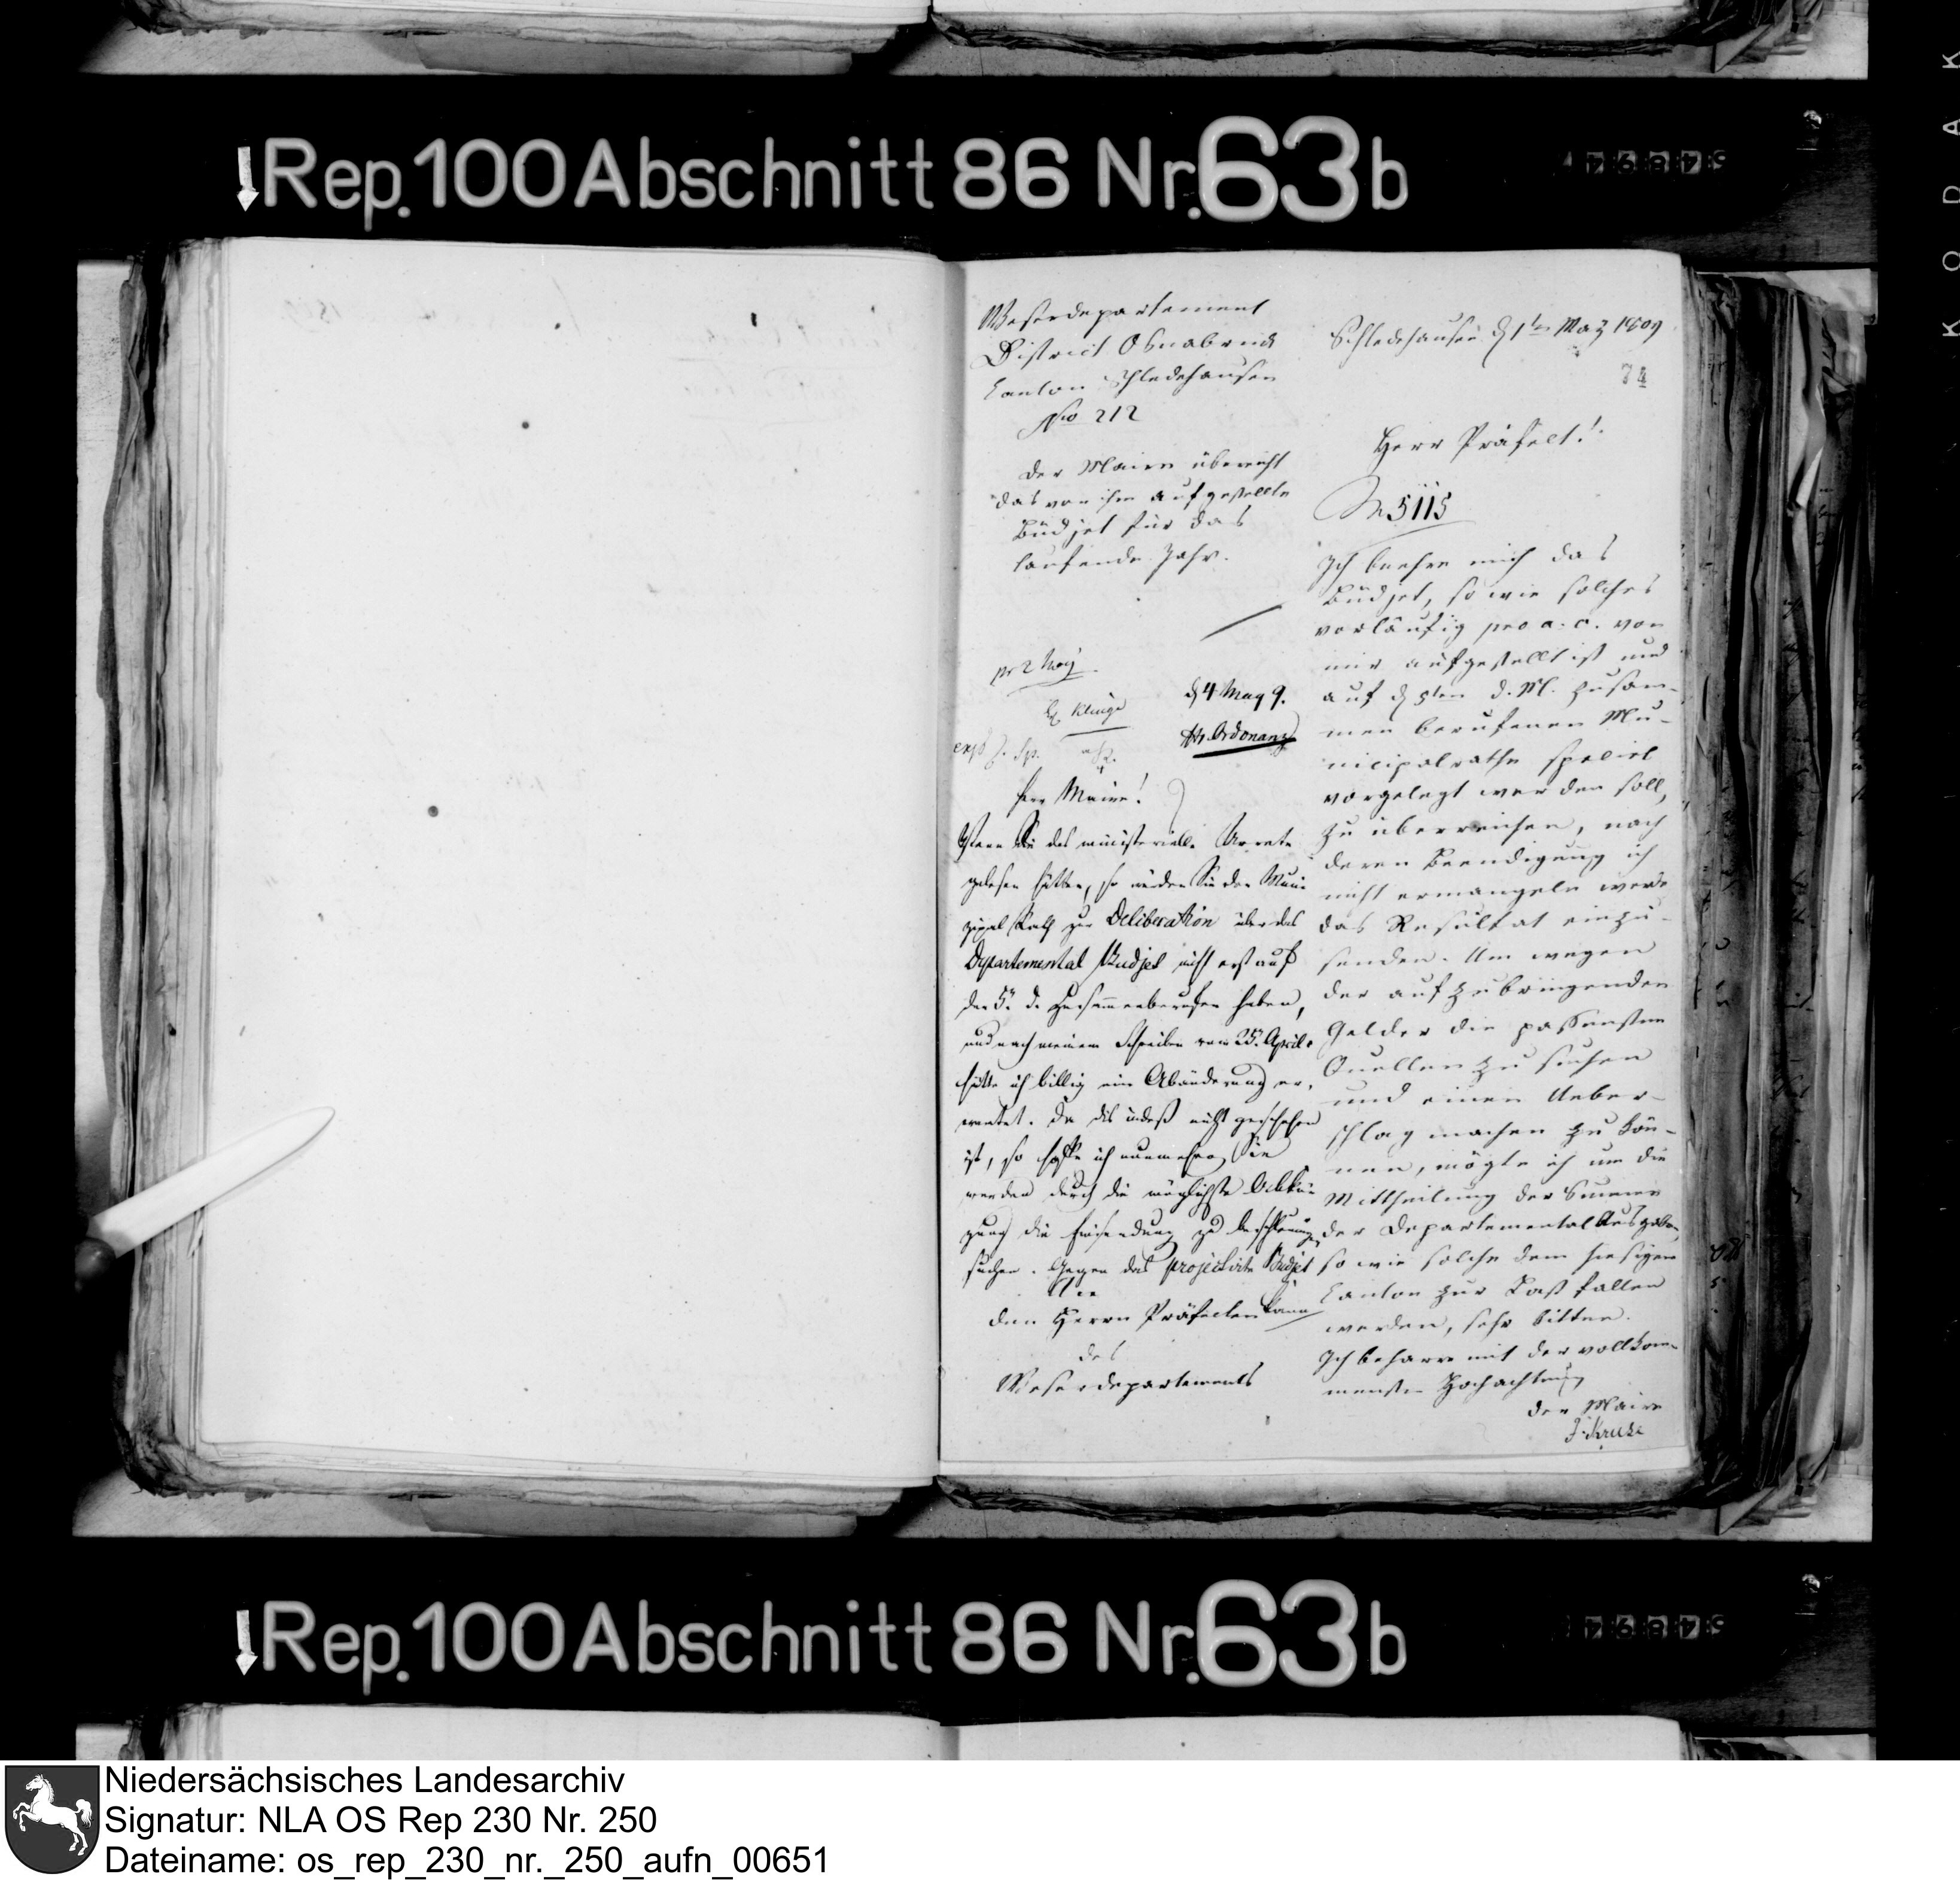 Rep. 100 Abschnitt 86 Nr. 63b
KODAK
Weserdepartement
District Osnabrück
Canton Schledehausen
No 212
Der Maire überreicht
das von ihm aufgestellte
Büdjet für das
laufende Jahr.
pr 2 May
Klinge
d 4 May 9.
Ordonanz
Herr Maire!
Wenn Sie das ministerielle Arrete
gelesen hätten, so würden Sie den Muni
zipal Rath zur Deliberation über das
Departemental Budjet nicht erst auf
den 5. d. zusammenberufen haben,
und nach meinem Schreiben vom 25. April
hätte ich billig eine Abänderung er-
wartet. Da dies indeß nicht geschehen
ist, so hoffe ich nunmehro, Sie
werden durch die möglichste Abkür
zung die Einsendung zu beschleunigen
suchen. Gegen das projectirte Budjet
kann
An
den Herrn Präfecten
des
Weserdepartements
Schledehausen d 1ten May 1809
74
Herr Präfect!
N 5115
Ich beehre mich das
Büdjet, so wie solches
vorläufig pro a. c. von
mir aufgestellt ist und
auf d 5ten d. M. zusam-
men berufenen Mu-
nicipalrathe speciel
vorgelegt werden soll,
zu überreichen, nach
deren Beendigung ich
nicht ermangeln werde
das Resültat einzu-
senden. Um wegen
der aufzubringenden
Gelder die passensten
Quellen zu suchen
und einen Ueber-
schlag machen zu kön-
nen, mögte ich um die
Mittheilung der Summe
der Departemental Ausgaben,
so wie solche dem hiesigen
Canton zur Last fallen
werden, sehr bitten.
Ich beharre mit der vollkom-
mensten Hochachtung
der Maire
J. Kruse
Rep. 100 Abschnitt 86 Nr. 63b
Niedersächsisches Landesarchiv
Signatur: NLA OS Rep 230 Nr. 250
Dateiname: os_rep_230_nr._250_aufn_00651